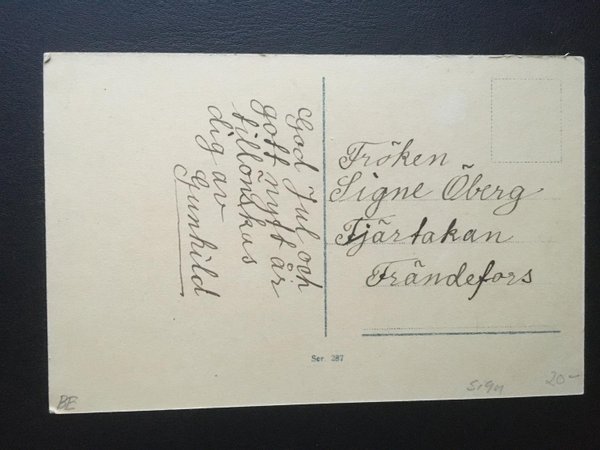 God Jul och
gott nytt år
tillönskus
dig av
Gunhild
Fröken
Signe Öberg
Tjärtakan
Frändefors
Ser. 287
BE
20-